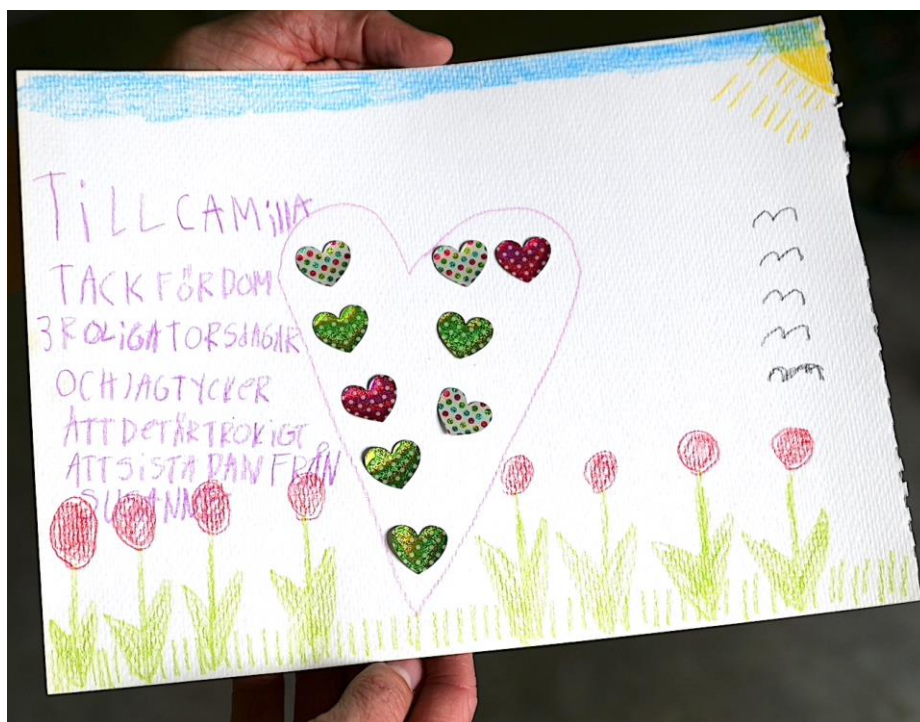 TiLLCAMillA
TACK FÖRDOM
3 ROLIGATORSdAGAR
OCHJAGTYCKeR
ATTDeTÄRTROKIGT
ATTSISTA DAN FRÅN
SUSANNE